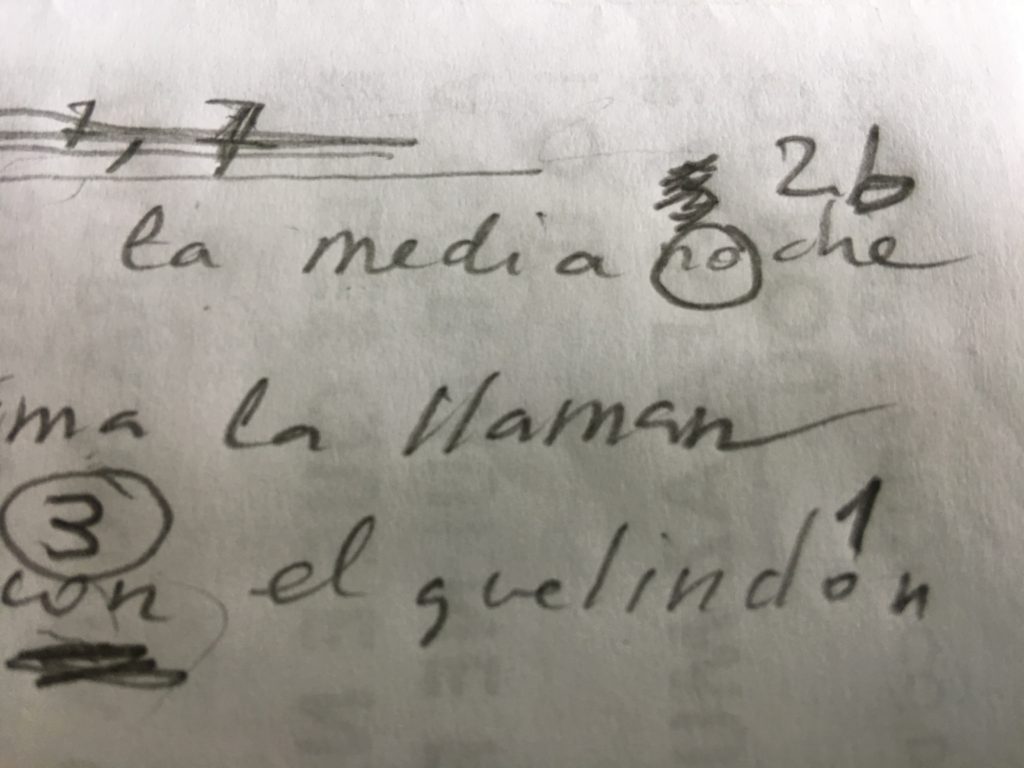 7, 7
2b
la media noche
ma la llaman
3 1
con el guelindón